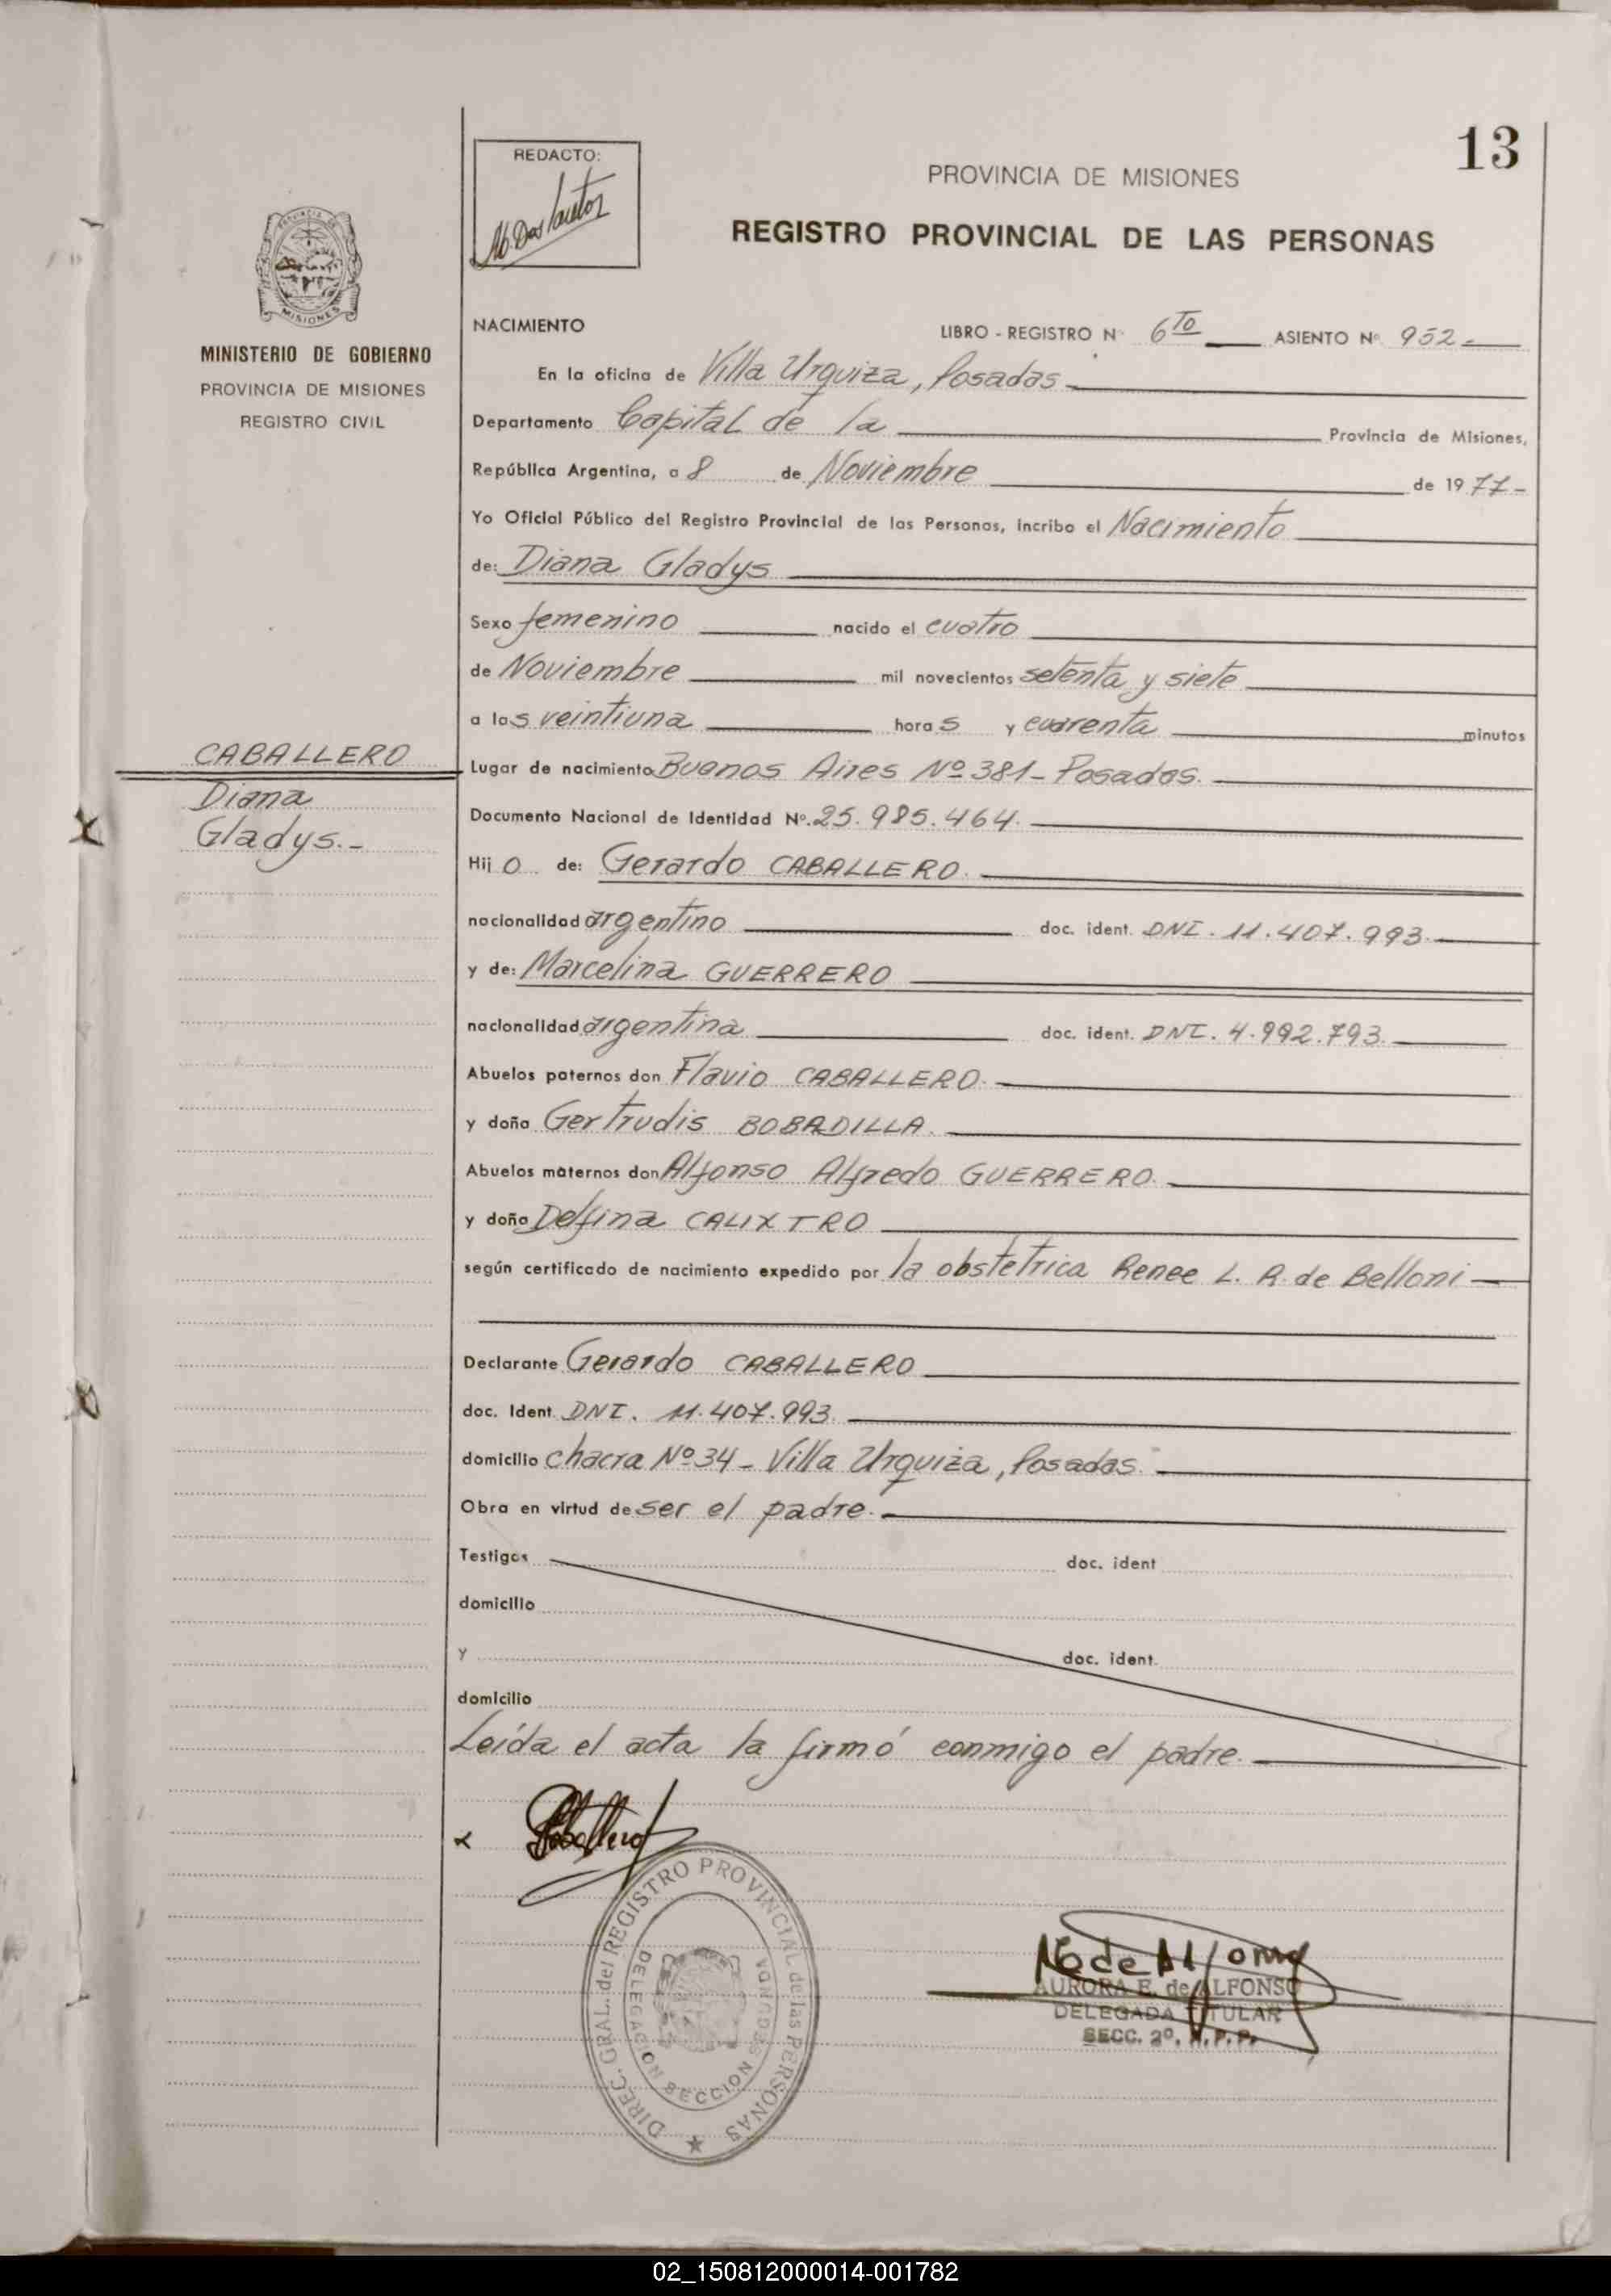 13
REDACTO:
PROVINCIA DE MISIONES
REGISTRO PROVINCIAL DE LAS PERSONAS
MISIONES
MINISTERIO DE GOBIERNO
PROVINCIA DE MISIONES
REGISTRO CIVIL
NACIMIENTO
LIBRO - REGISTRO Nº 6to ASIENTO Nº 952.-
En la oficina de Villa Urquiza, Posadas.-
Departamento Capital de la Provincia de Misiones,
República Argentina, a 8 de Noviembre de 1977-
Yo Oficial Público del Registro Provincial de las Personas, incribo el Nacimiento
de: Diana Gladys
Sexo femenino nacido el cuatro
de Noviembre mil novecientos setenta y siete
a las veintiuna horas y cuarenta minutos
CABALLERO
Diana
Gladys.-
Lugar de nacimiento Buenos Aires Nº 381- Posadas.
Documento Nacional de Identidad Nº. 25.985.464.
Hijo de: Gerardo CABALLERO.
nacionalidad argentino doc. ident. DNI. 11.407.993.
y de: Marcelina GUERRERO
nacionalidad argentina doc. ident. DNI. 4.992.793.
Abuelos paternos don Flavio CABALLERO.
y doña Gertrudis BOBADILLA.
Abuelos maternos don Alfonso Alfredo GUERRERO.
y doña Delfina CALIXTRO
según certificado de nacimiento expedido por la obstetrica Renee L. R. de Belloni
Declarante Gerardo CABALLERO
doc. Ident. DNI. 11.407.993.
domicilio chacra Nº 34 - Villa Urquiza, Posadas.
Obra en virtud de ser el padre.
Testigos doc. ident
domicilio
y doc. ident.
domicilio
Leída el acta la firmó conmigo el padre.
DIREC. GRAL. del REGISTRO PROVINCIAL de las PERSONAS
DELEGACION SECCION SEGUNDA
AURORA E. de ALFONSO
DELEGADA TITULAR
SECC. 2º. R.P.P.
02_150812000014-001782